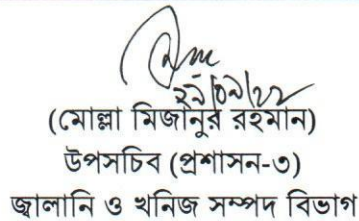 (মোল্লা মিজানুর রহমান)
উপসচিব (প্রশাসন-৩)
জ্বালানি ও খনিজ সম্পদ বিভাগ